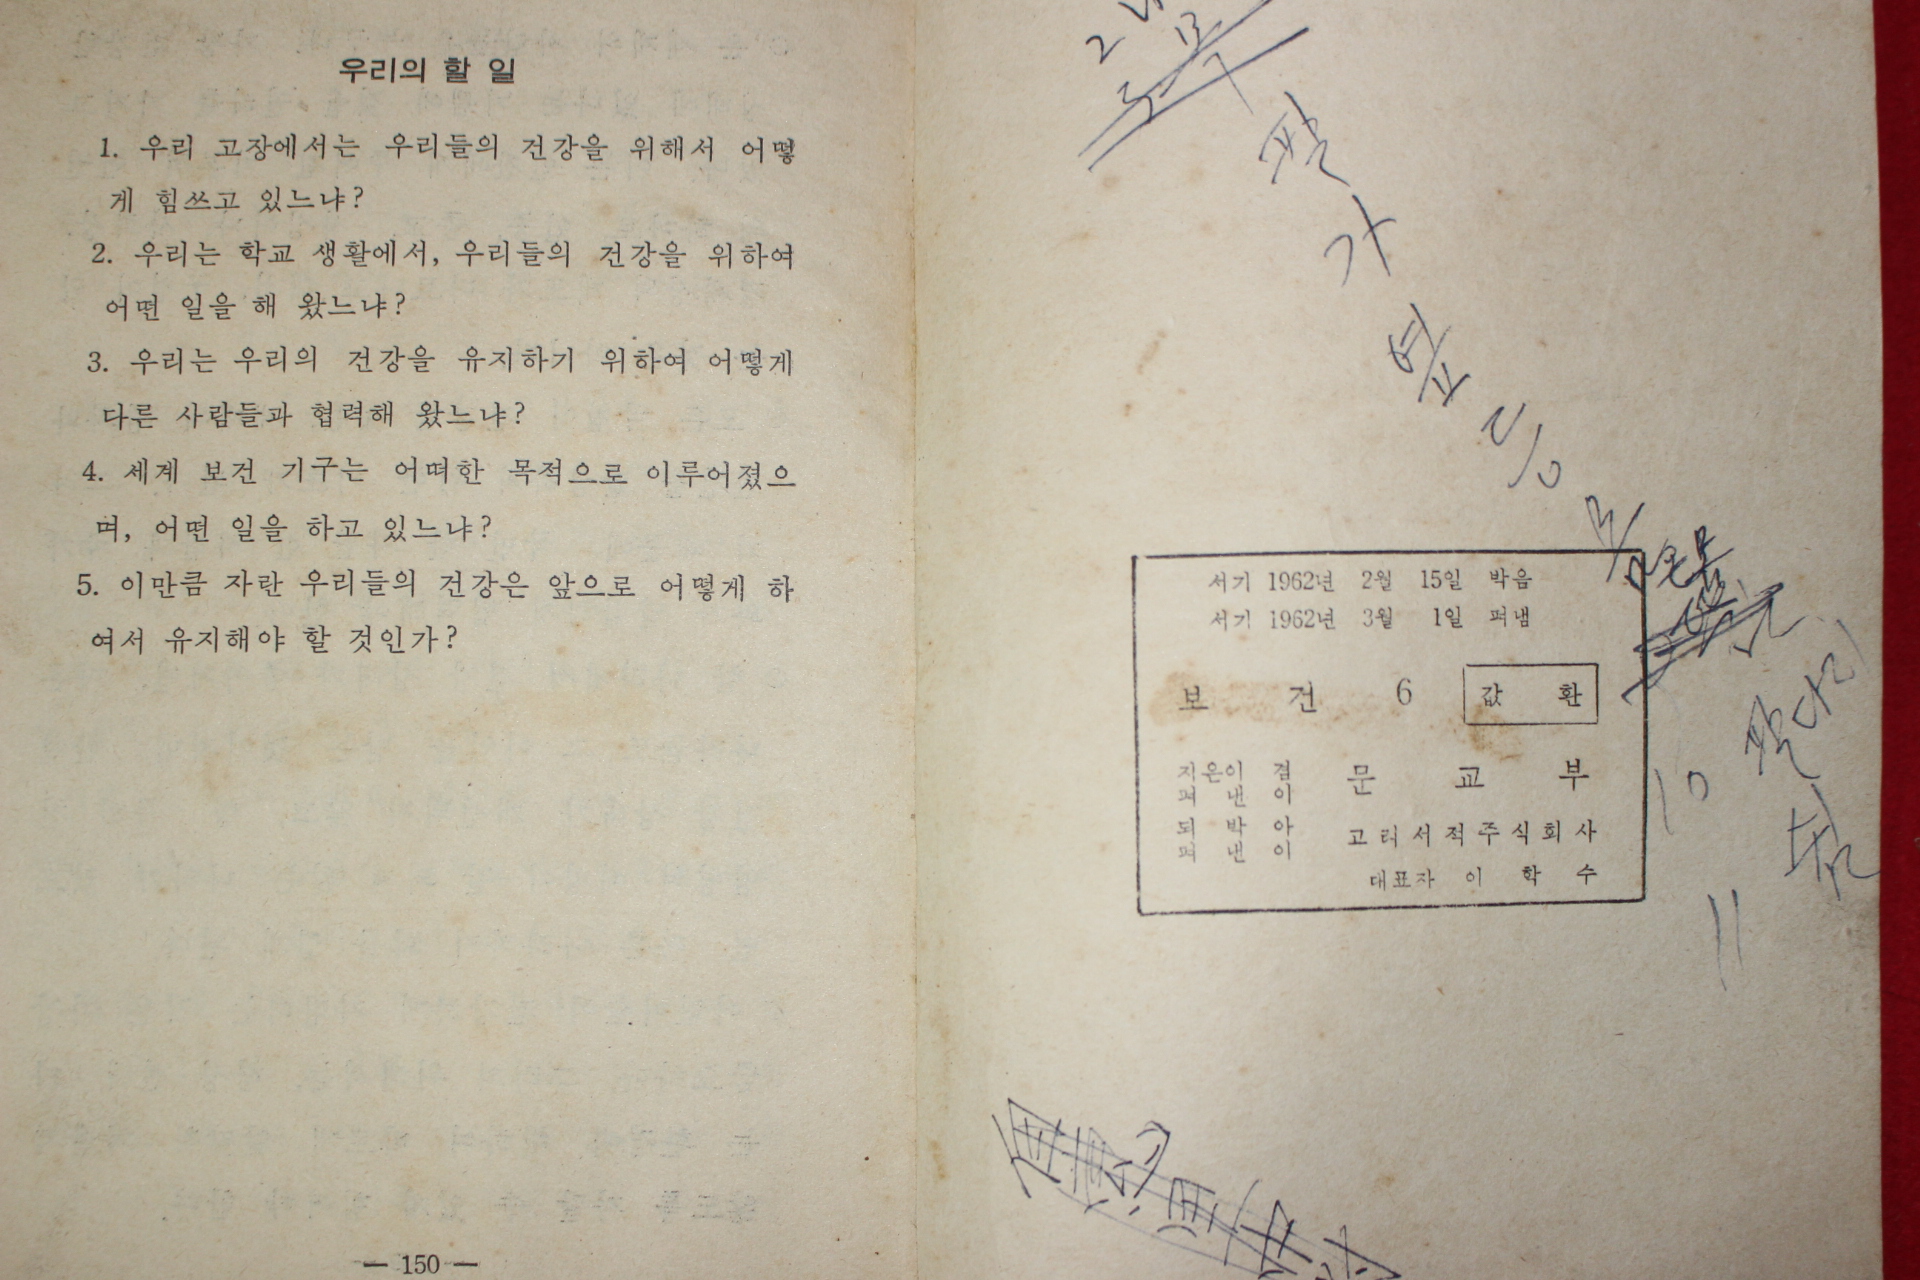 우리의 할 일
1. 우리 고장에서는 우리들의 건강을 위해서 어떻
게 힘쓰고 있느냐?
2. 우리는 학교 생활에서, 우리들의 건강을 위하여
어떤 일을 해 왔느냐?
3. 우리는 우리의 건강을 유지하기 위하여 어떻게
다른 사람들과 협력해 왔느냐?
4. 세계 보건 기구는 어떠한 목적으로 이루어졌으
며, 어떤 일을 하고 있느냐?
5. 이만큼 자란 우리들의 건강은 앞으로 어떻게 하
여서 유지해야 할 것인가?
— 150 —
서기 1962년 2월 15일 박음
서기 1962년 3월 1일 펴냄
보 건 6 값 환
지은이 겸
펴 낸 이
문 교 부
되 박 아
펴 낸 이
고려서적주식회사
대표자 이 학 수
10
11